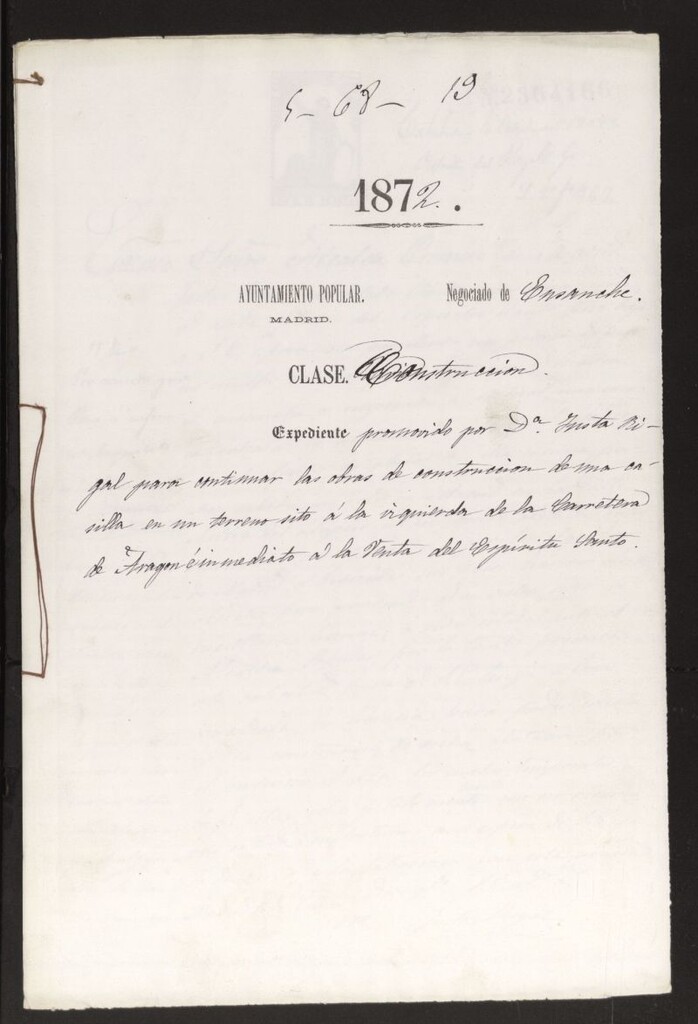 5-68-19
1872.
AYUNTAMIENTO POPULAR. Negociado de Ensanche.
MADRID.
CLASE. Construccion.
Expediente promovido por Dª. Justa Ri-
gal para continuar las obras de construccion de una ca-
silla en un terreno sito á la izquierda de la Carretera
de Aragon é inmediato á la Venta del Espíritu Santo.